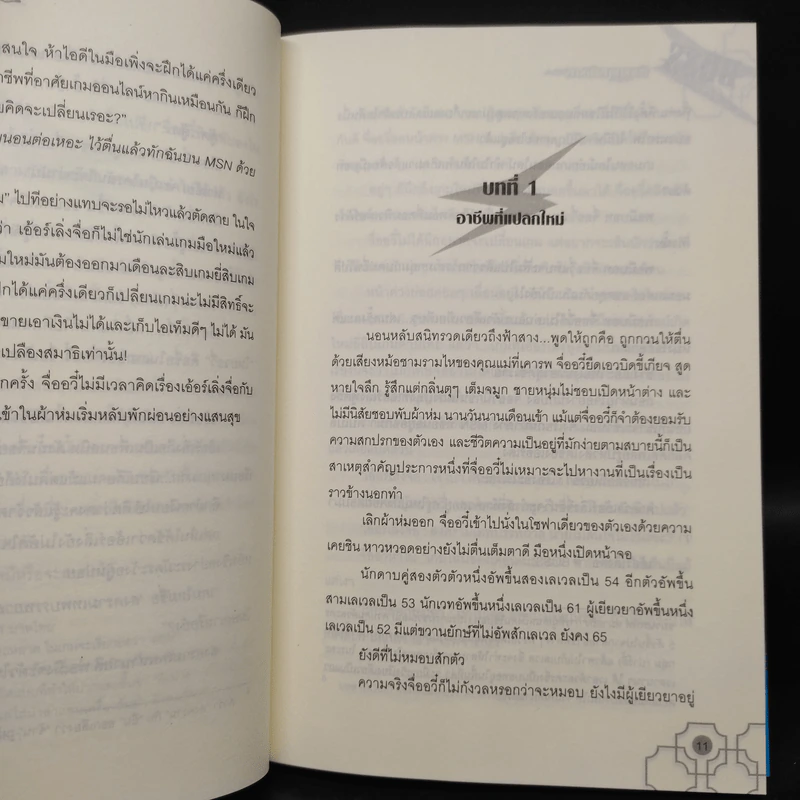 สนใจ ห้าไอดีในมือเพิ่งจะฝึกได้แค่ครึ่งเดียว
าชีพที่อาศัยเกมออนไลน์หากินเหมือนกัน ก็ฝึก
ยคิดจะเปลี่ยนเรอะ?"
นอนต่อเหอะ ไว้ตื่นแล้วทักฉันบน MSN ด้วย
ม" ไปทีอย่างแทบจะรอไม่ไหวแล้วตัดสาย ในใจ
ว่า เอ้อร์เลิ่งจื่อก็ไม่ใช่นักเล่นเกมมือใหม่แล้ว
มใหม่มันต้องออกมาเดือนละสิบเกมยี่สิบเกม
ฝึกได้แค่ครึ่งเดียวก็เปลี่ยนเกมน่ะไม่มีสิทธิ์จะ
ขายเอาเงินไม่ได้และเก็บไอเท็มดีๆ ไม่ได้ มัน
เปลืองสมาธิเท่านั้น!
กครั้ง จื่ออวี๋ไม่มีเวลาคิดเรื่องเอ้อร์เลิ่งจื่อกับ
ข้าในผ้าห่มเริ่มหลับพักผ่อนอย่างแสนสุข
บทที่ 1
อาชีพที่แปลกใหม่
นอนหลับสนิทรวดเดียวถึงฟ้าสาง...พูดให้ถูกคือ ถูกกวนให้ตื่น
ด้วยเสียงหม้อชามรามไหของคุณแม่ที่เคารพ จื่ออวี๋ยืดเอวบิดขี้เกียจ สูด
หายใจลึก รู้สึกแต่กลิ่นตุๆ เต็มจมูก ชายหนุ่มไม่ชอบเปิดหน้าต่าง และ
ไม่มีนิสัยชอบพับผ้าห่ม นานวันนานเดือนเข้า แม้แต่จื่ออวี๋ก็จำต้องยอมรับ
ความสกปรกของตัวเอง และชีวิตความเป็นอยู่ที่มักง่ายตามสบายนี้ก็เป็น
สาเหตุสำคัญประการหนึ่งที่จื่ออวี๋ไม่เหมาะจะไปหางานที่เป็นเรื่องเป็น
ราวข้างนอกทำ
เลิกผ้าห่มออก จื่ออวี๋เข้าไปนั่งในโซฟาเดี่ยวของตัวเองด้วยความ
เคยชิน หาวหวอดอย่างยังไม่ตื่นเต็มตาดี มือหนึ่งเปิดหน้าจอ
นักดาบคู่สองตัวตัวหนึ่งอัพขึ้นสองเลเวลเป็น 54 อีกตัวอัพขึ้น
สามเลเวลเป็น 53 นักเวทอัพขึ้นหนึ่งเลเวลเป็น 61 ผู้เยียวยาอัพขึ้นหนึ่ง
เลเวลเป็น 52 มีแต่ขวานยักษ์ที่ไม่อัพสักเลเวล ยังคง 65
ยังดีที่ไม่หมอบสักตัว
ความจริงจื่ออวี๋ก็ไม่กังวลหรอกว่าจะหมอบ ยังไงมีผู้เยียวยาอยู่
11